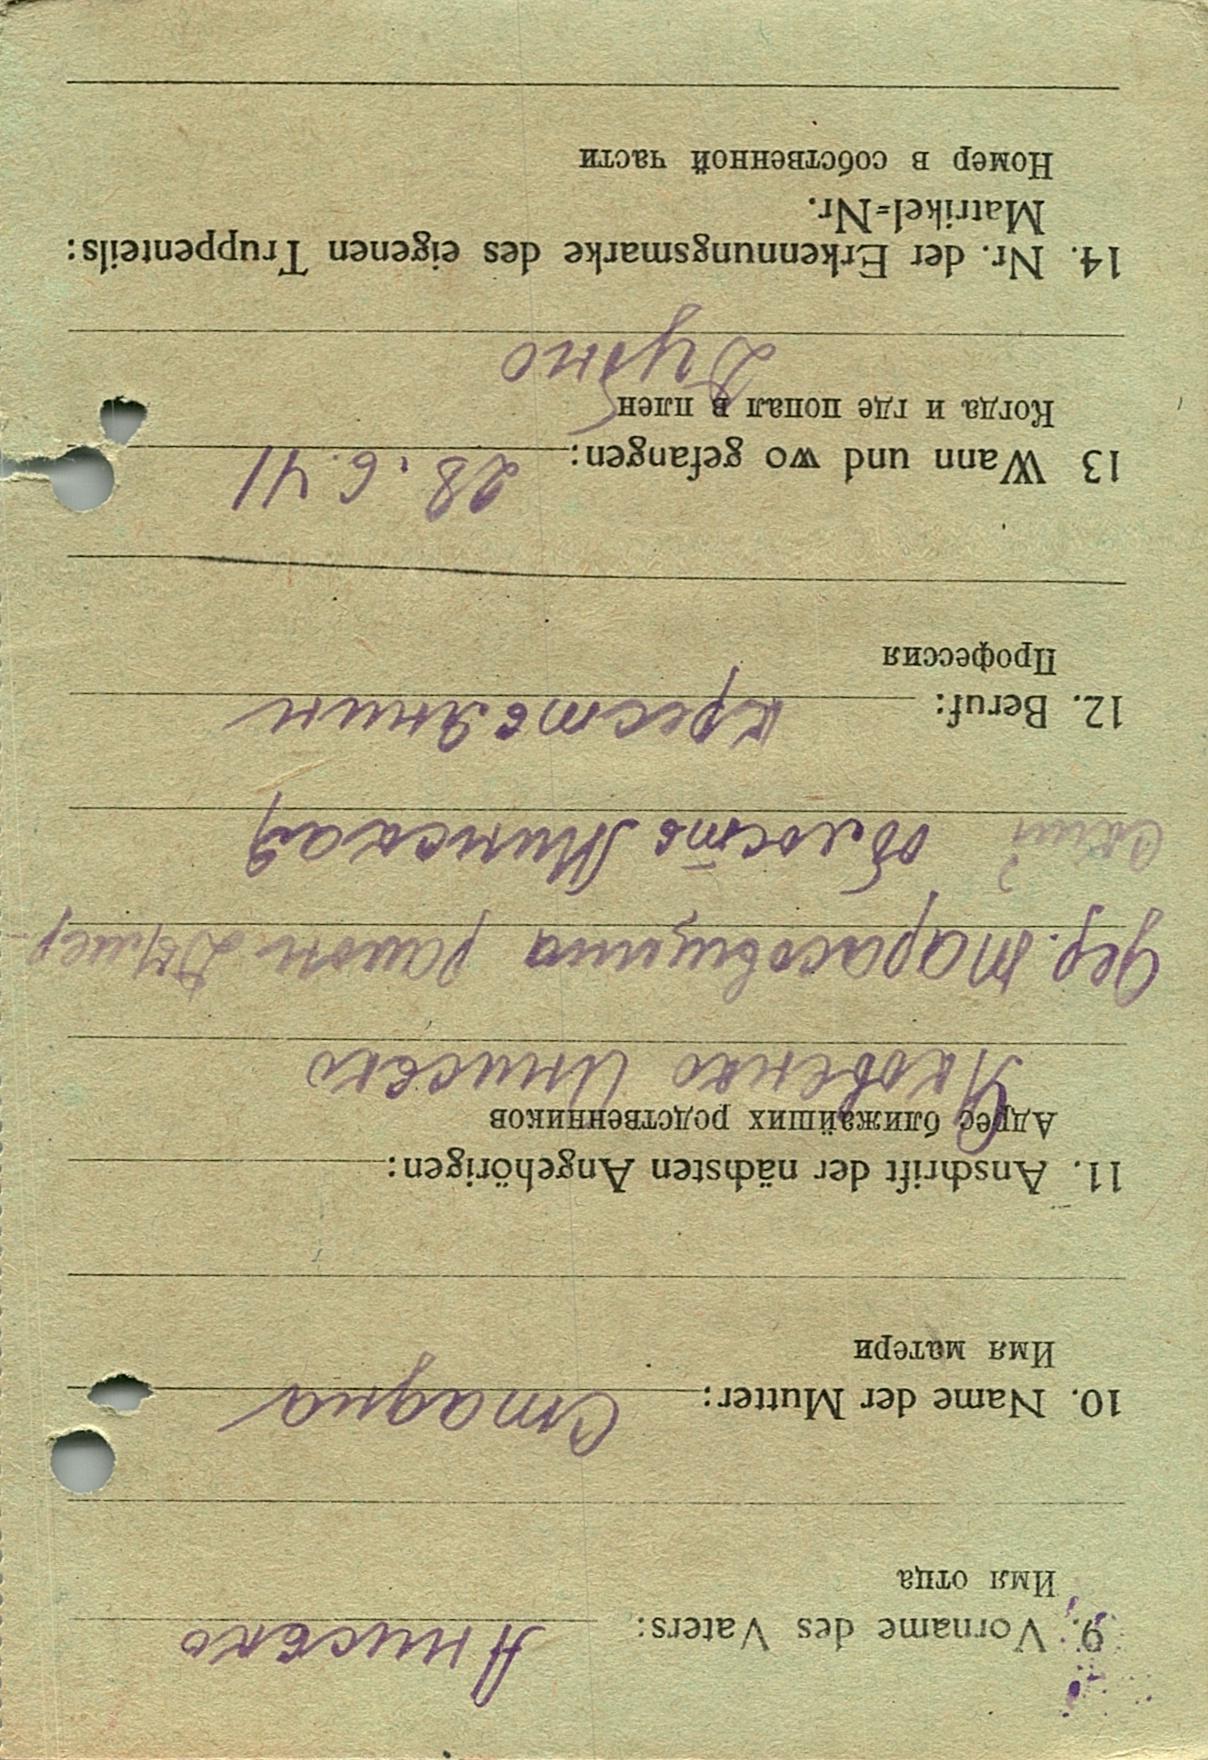 9. Vorname des Vaters: Анисько
Имя отца
10. Name der Mutter: Стадна
Имя матери
11. Anschrift der nächsten Angehörigen:
Адрес ближайших родственников
Яковенко Анисько
дер. Тарасовщина район Дзьмер-
ский область Минская
12. Beruf: крестьянин
Профессия
13 Wann und wo gefangen: 28.6.41
Когда и где попал в плен
Дубно
14. Nr. der Erkennungsmarke des eigenen Truppenteils:
Matrikel=Nr.
Номер в собственной части